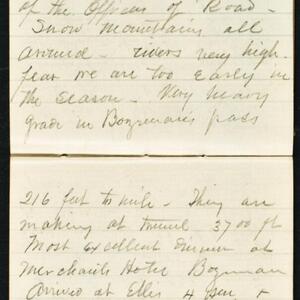 of the Officers of Road -
Snow mountains all
around - rivers very high.
fear we are too early in
the season - Very heavy
grade in Bozeman's pass
216 feet to mile - They are
making at tunnel 3700 ft
Most excellent dinner at
Merchants Hotel Bozeman
Arrived at Ellis 4